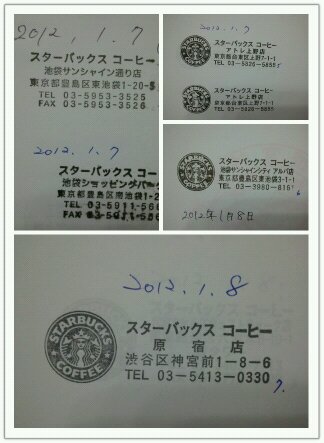 2012, 1, 7
スターバックス コーヒー
池袋サンシャイン通り店
東京都豊島区東池袋1-20-
TEL 03-5953-3525
FAX 03-5953-3526
2012. 1. 7
スターバックス コーヒー
池袋ショッピングパーク
東京都豊島区南池袋1-2
TEL 03-5911-56
FAX 03-5911-56
2012. 1. 7
スターバックス コーヒー
アトレ上野店
東京都台東区上野7-1-1
TEL 03-5826-5855
スターバックス コーヒー
アトレ上野店
東京都台東区上野7-1-1
TEL 03-5826-5855
スターバックス コーヒー
池袋サンシャインシティ アルパ店
東京都豊島区東池袋3-1-1
TEL 03-3980-816
2012年1月8日
2012. 1. 8
STARBUCKS
COFFEE
スターバックス コーヒー
原宿店
渋谷区神宮前1-8-6
TEL 03-5413-0330
7.